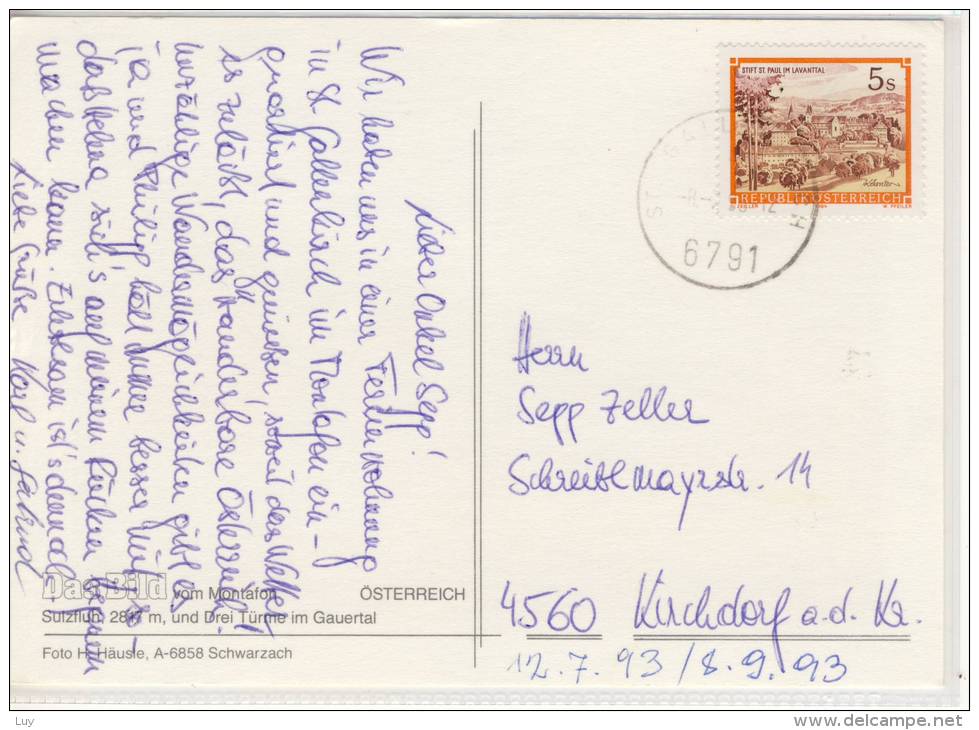 Lieber Onkel Sepp!
Wir haben uns in einer Ferienwohnung
in St. Gallenkirch im Montafon ein-
quartiert und genießen, soweit das Wetter
es zuläßt, das wunderbare Österreich!
Unzählige Wandermöglichkeiten gibt es
ja und Philip hält immer besser mit, so-
daß Helena sich's auf meinem Rücken bequem
machen kann. Erholsam ist's dennoch.
Liebe Grüße Karl u. Gertrud
Das Bild vom Montafon ÖSTERREICH
Sulzfluh, 2817 m, und Drei Türme im Gauertal
Foto H. Häusle, A-6858 Schwarzach
STIFT ST. PAUL IM LAVANTTAL
5s
REPUBLIK ÖSTERREICH
ZEILER
W. PFEILER
6791
Herrn
Sepp Zeller
Schreiblmayrstr. 14
4560 Kirchdorf a.d. Kr.
12.7.93/8.9.93
Luy
www.delcampe.net